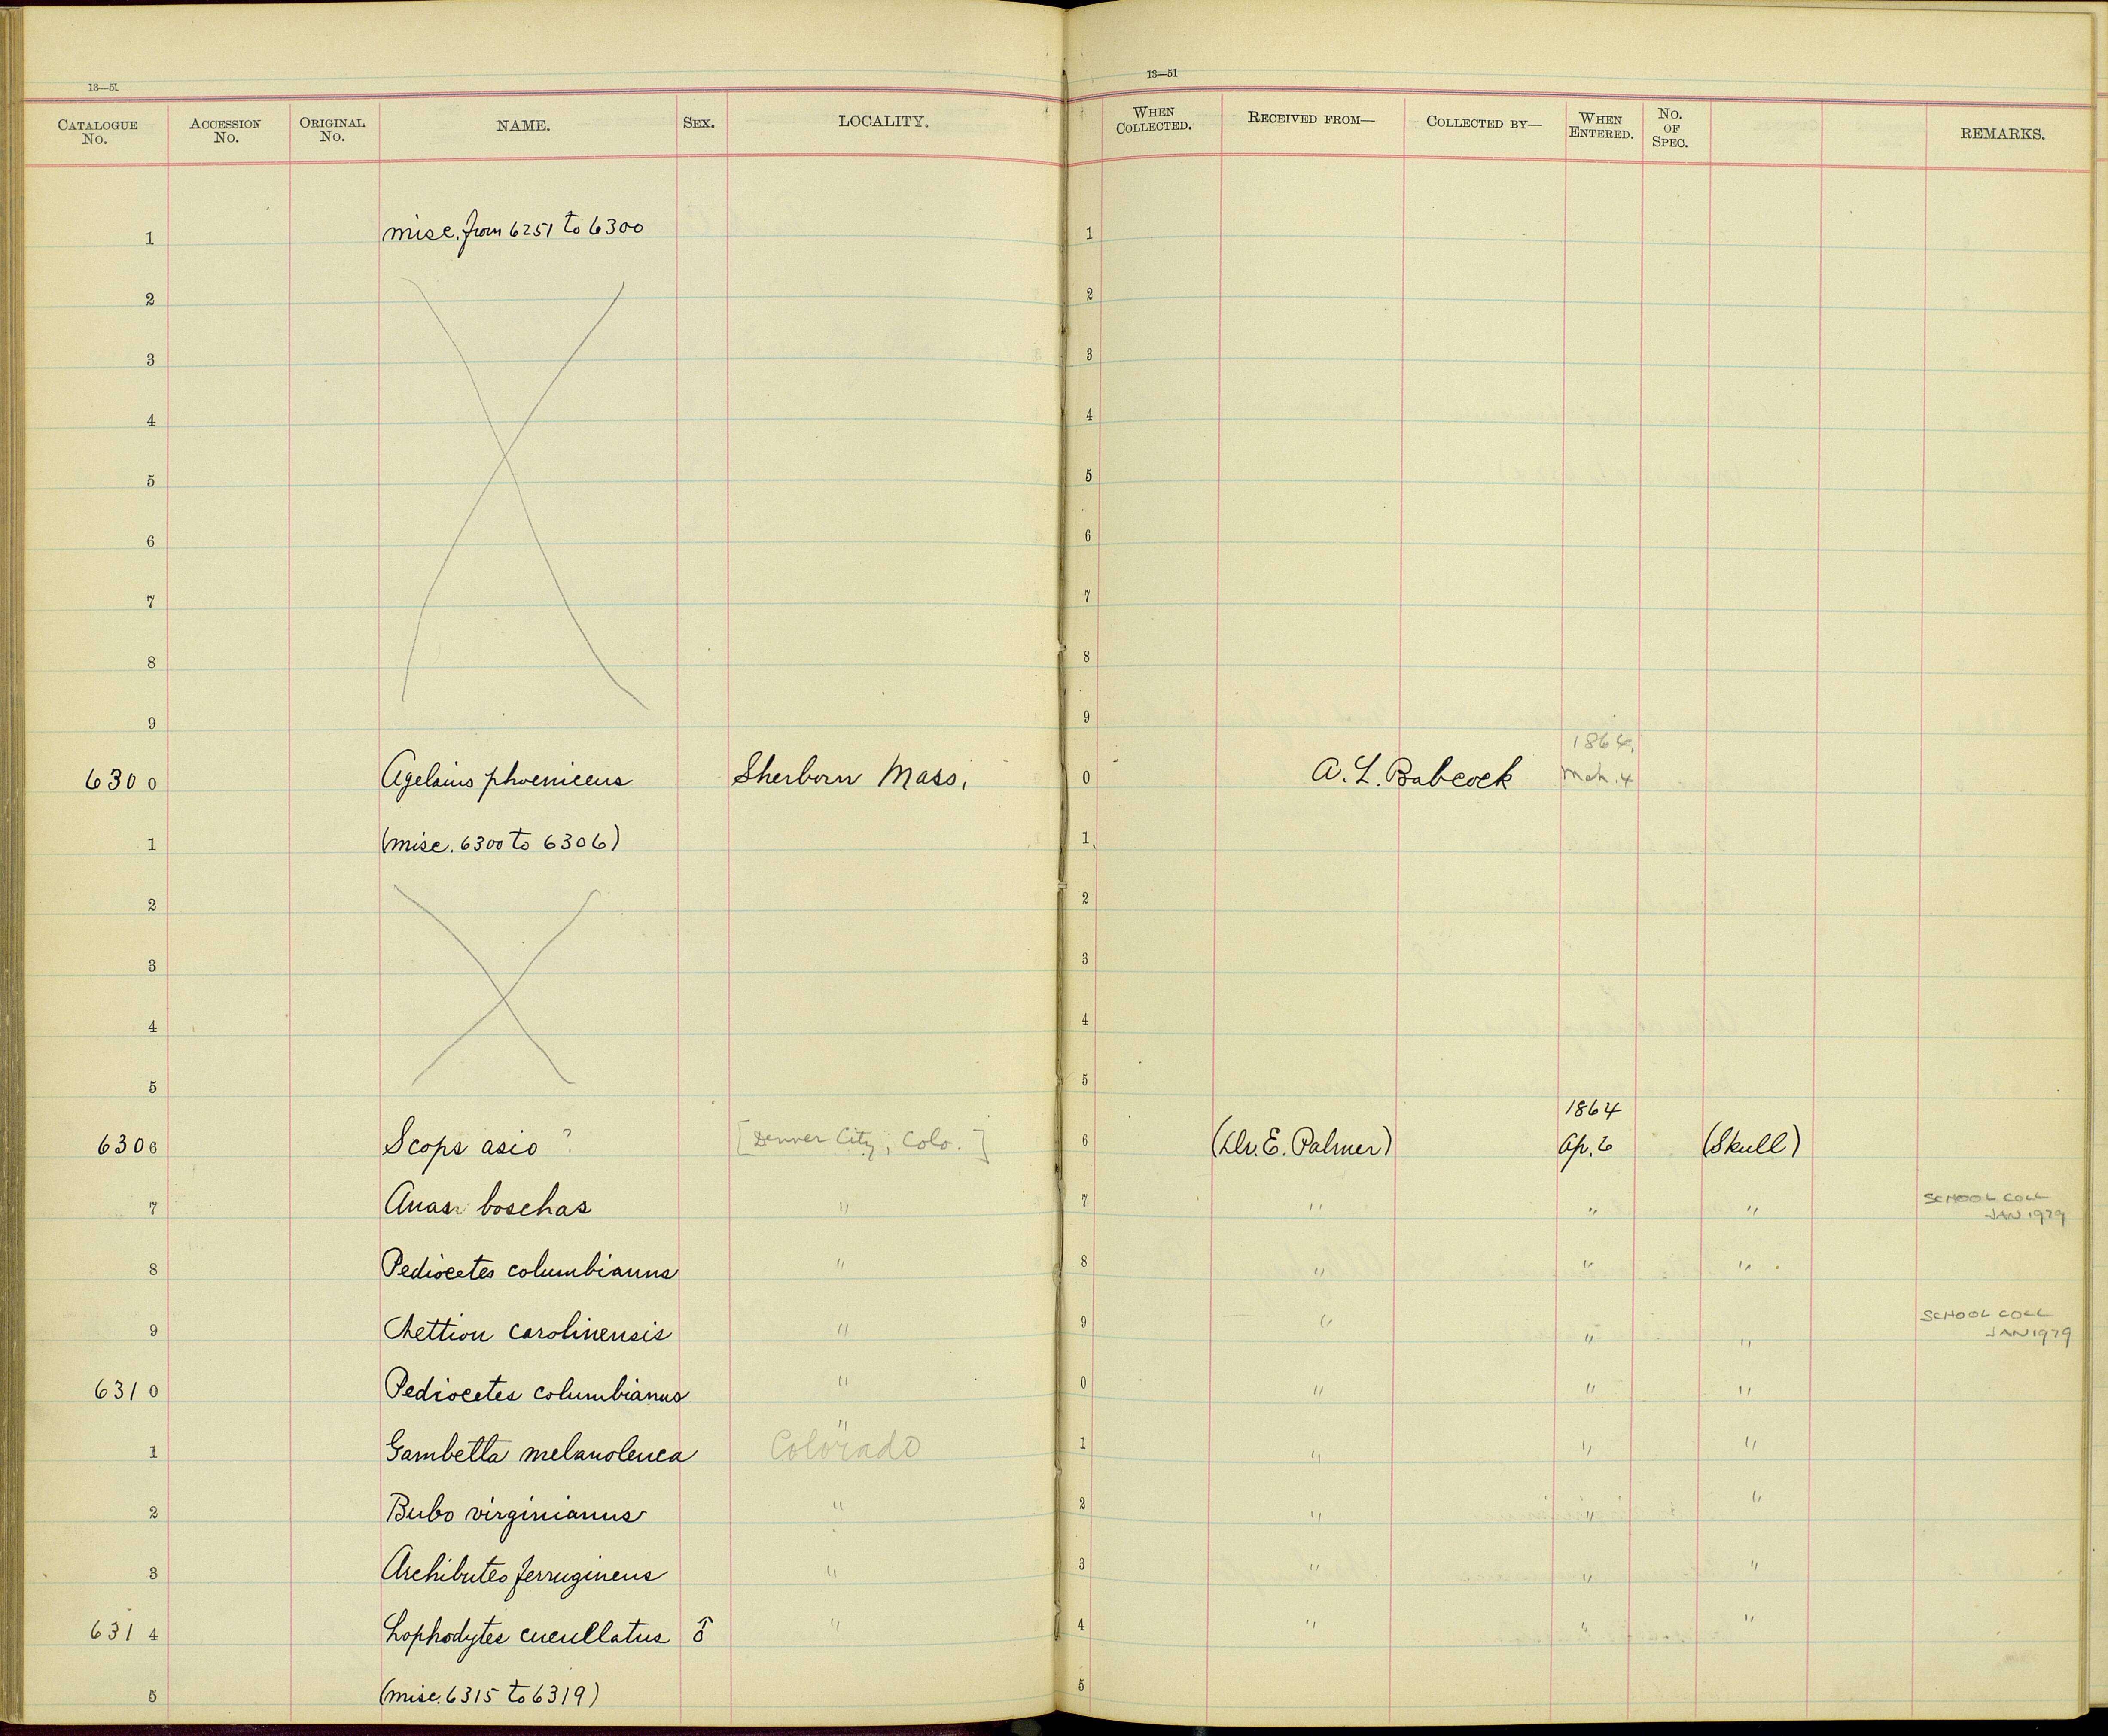 13—51
13—51
CATALOGUE No. ACCESSION No. ORIGINAL No. NAME. SEX. LOCALITY. WHEN COLLECTED. RECEIVED FROM— COLLECTED BY— WHEN ENTERED. No. OF SPEC. REMARKS.
1 misc. from 6251 to 6300 1
2 2
3 3
4 4
5 5
6 6
7 7
8 8
9 9
1864,
6300 Agelaius phoeniceus Sherborn Mass. 0 A. L. Babcock Mch. 4
1 (misc. 6300 to 6306) 1
2 2
3 3
4 4
5 5
1864
6306 Scops asio ? [Denver City, Colo.] 6 (Dr. E. Palmer) Ap. 6 (Skull)
7 Anas boschas " 7 " " " SCHOOL COLL JAN 1979
8 Pediocetes columbianus " 8 " " "
9 Nettion carolinensis " 9 " " " SCHOOL COLL JAN 1979
6310 Pediocetes columbianus " 0 " " "
1 Gambetta melanoleuca " Colorado 1 " " "
2 Bubo virginianus " 2 " " "
3 Archibuteo ferrugineus " 3 " " "
6314 Lophodytes cucullatus ♂ " 4 " " "
5 (misc. 6315 to 6319) 5